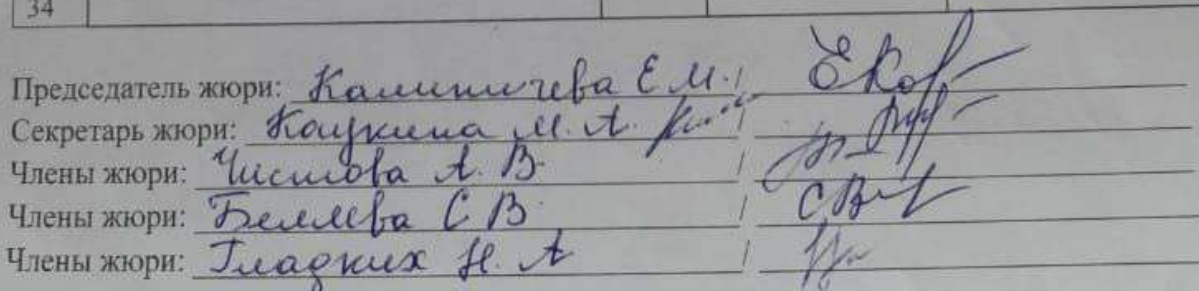 34
Председатель жюри: Калиничева Е.М. /
Секретарь жюри: М. А. /
Члены жюри: Чистова А. В. /
Члены жюри: Беляева С В /
Члены жюри: Гладких Н. А /